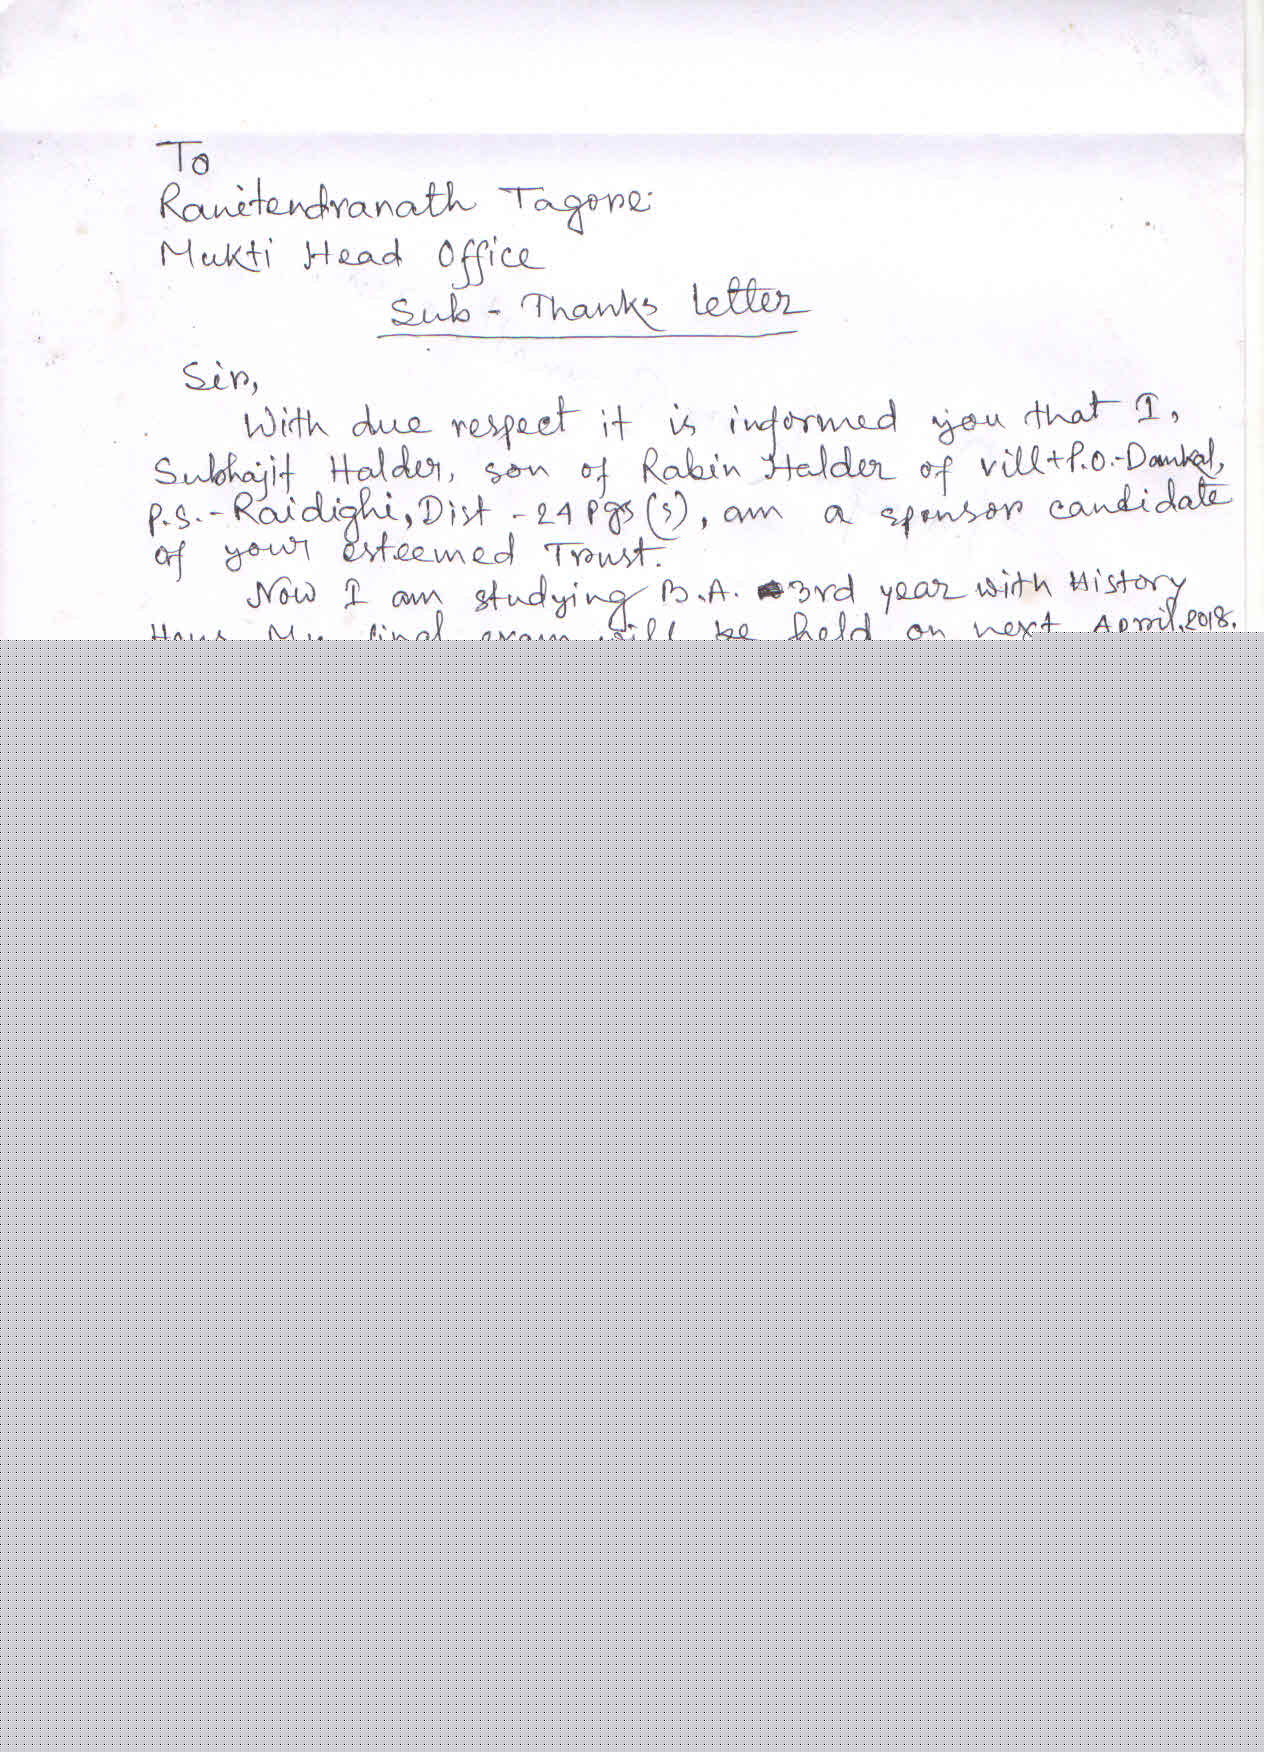 To
Ranitendranath Tagore.
Mukti Head Office
Sub - Thanks letter
Sir,
With due respect it is informed you that I,
Subhajit Halder, son of Rabin Halder of vill+P.O.-Damkal,
P.S.-Raidighi, Dist - 24 Pgs (s), am a sponsor candidate
of your esteemed Trust.
Now I am studying B.A. 3rd year with History
Hons. My final exam will be held on next April, 2018.